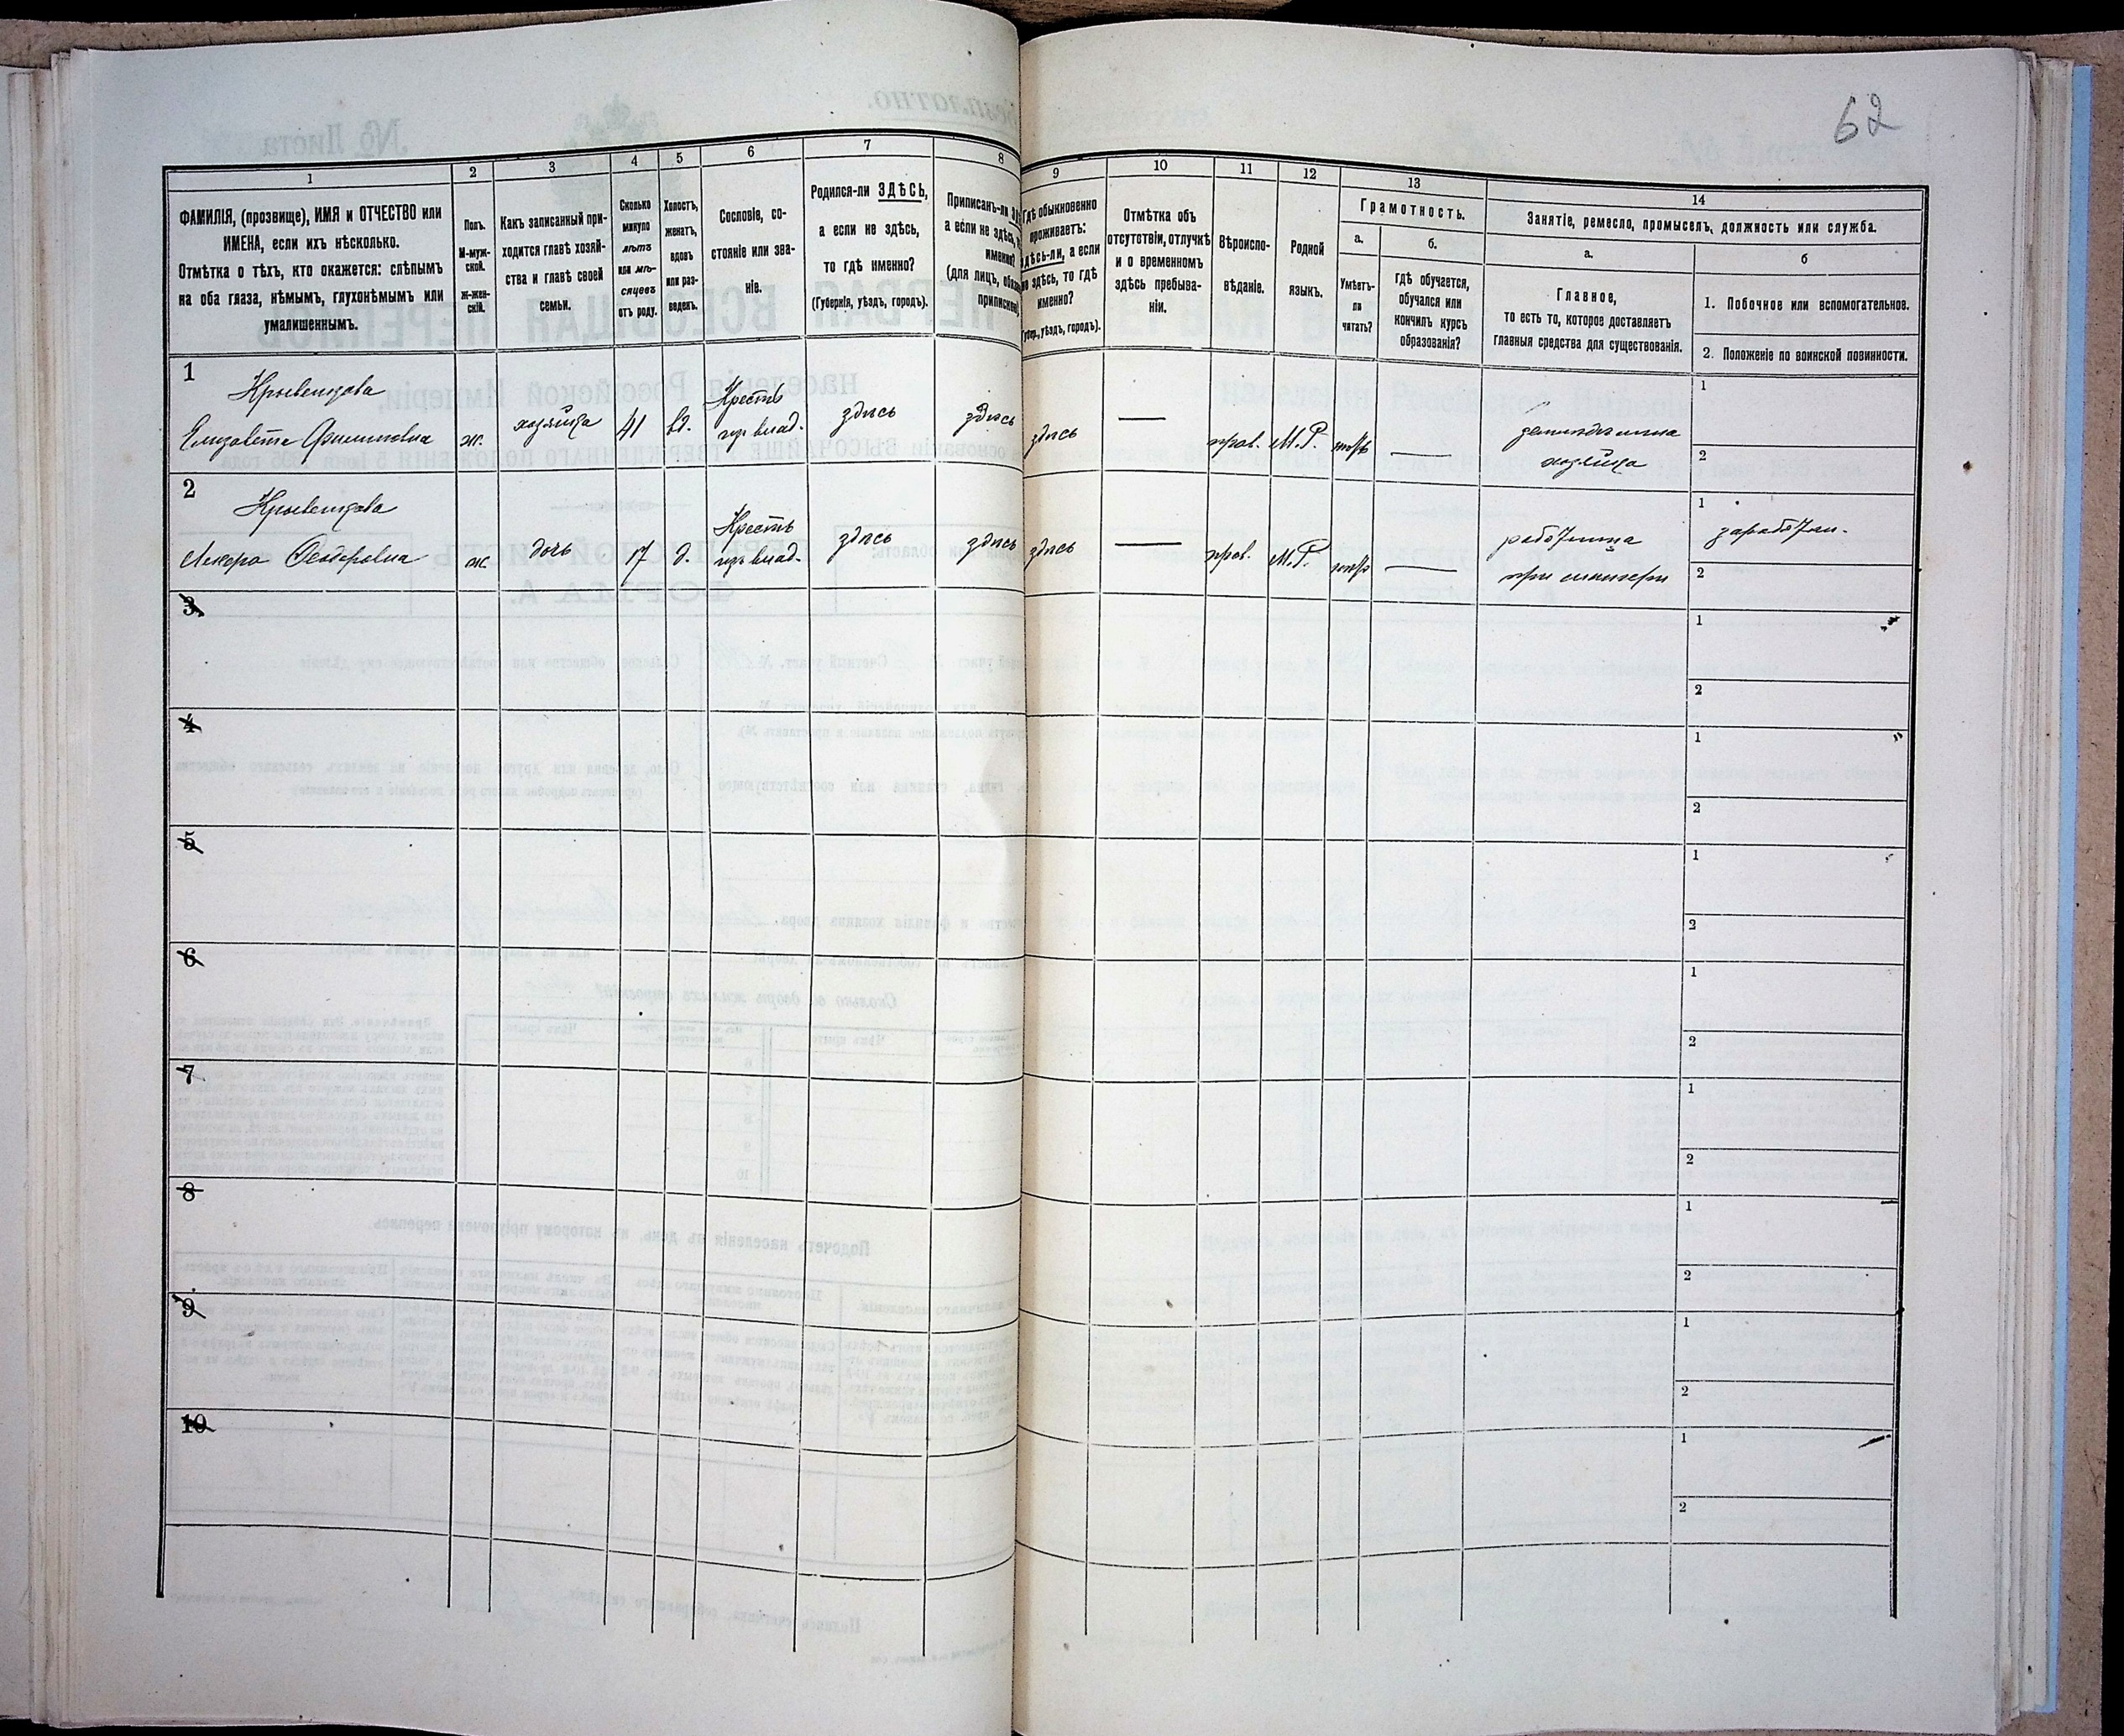 62
1
2
3
4
5
6
7
8
9
10
11
12
13
14
ФАМИЛІЯ, (прозвище), ИМЯ и ОТЧЕСТВО или
ИМЕНА, если ихъ нѣсколько.
Отмѣтка о тѣхъ, кто окажется: слѣпымъ
на оба глаза, нѣмымъ, глухонѣмымъ или
умалишеннымъ.
Полъ.
М-муж-
ской.
Ж-жен-
скій.
Какъ записанный при-
ходится главѣ хозяй-
ства и главѣ своей
семьи.
Сколько
минуло
лѣтъ
или мѣ-
сяцевъ
отъ роду.
Холостъ,
женатъ,
вдовъ
или раз-
веденъ.
Сословіе, со-
стояніе или зва-
ніе.
Родился-ли ЗДѢСЬ,
а если не здѣсь,
то гдѣ именно?
(Губернія, уѣздъ, городъ).
Приписанъ-ли
а если не здѣсь,
именно?
(для лицъ,
Гдѣ обыкновенно
проживаетъ:
здѣсь-ли, а если
не здѣсь, то гдѣ
именно?
(Губер., уѣздъ, городъ).
Отмѣтка объ
отсутствіи, отлучкѣ
и о временномъ
здѣсь пребыва-
ніи.
Вѣроиспо-
вѣданіе.
Родной
языкъ.
Грамотность.
а.
Умѣетъ-
ли
читать?
б.
гдѣ обучается,
обучался или
кончилъ курсъ
образованія?
Занятіе, ремесло, промыселъ, должность или служба.
а.
Главное,
то есть то, которое доставляетъ
главныя средства для существованія.
б
1. Побочное или вспомогательное.
2. Положеніе по воинской повинности.
1
Елизавета Филиповна
ж.
хозяйка
41
вд.
Крестъ
изъ влад.
здѣсь
здѣсь
здѣсь
—
прав.
М.Р.
—
хозяйка
1
2
2
Феодоровна
ж.
дочь
17
д.
Крестъ
изъ влад.
здѣсь
здѣсь
здѣсь
—
прав.
М.Р.
—
работница
при матери
1
2
3
1
2
4
1
2
5
1
2
6
1
2
7
1
2
8
1
2
9
1
2
10
1
2